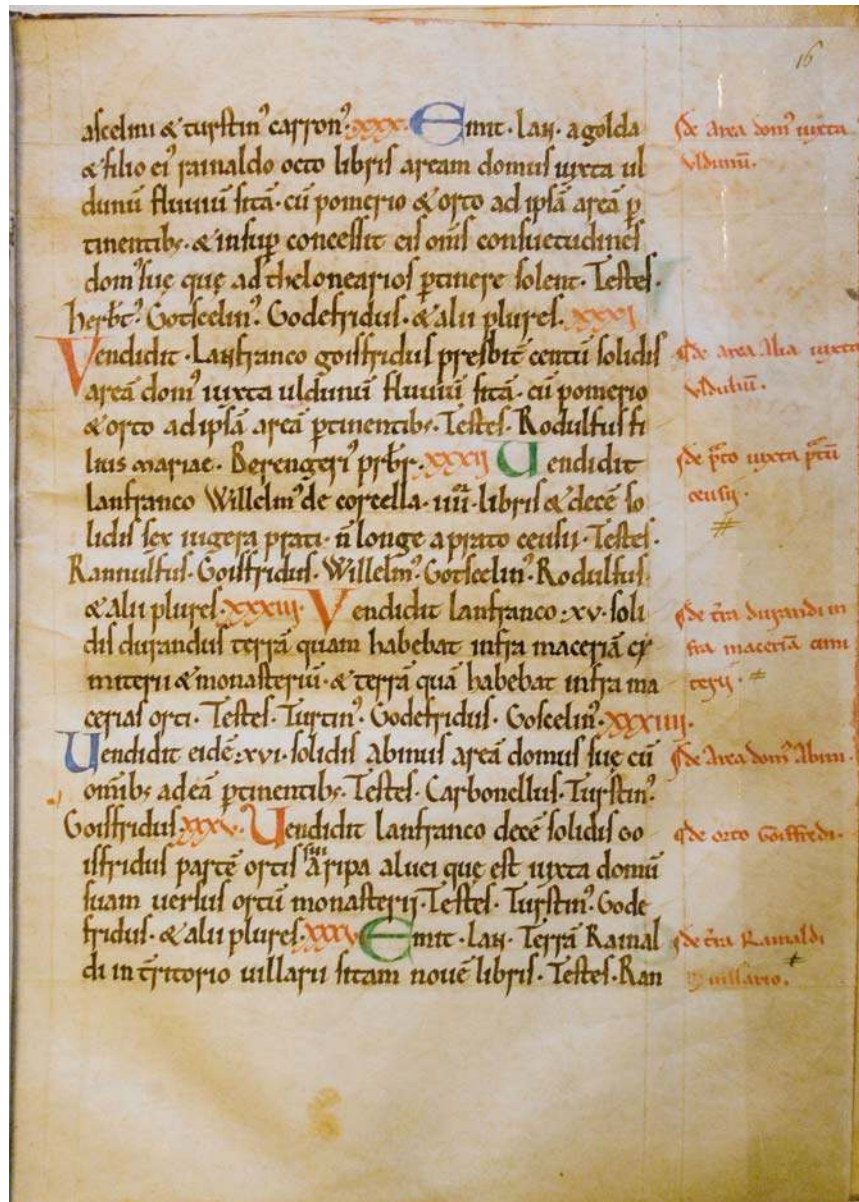 16
ascelini & turstin᾽ carron᾽. xxx. Emit. Lan. a golda
& filio ei᾽ rainaldo octo libris aream domus iuxta ul
dunū fluuiū sitā. cū pomerio & orto ad ipsā areā p̄
tinentib;. & insup̄ concessit eis om̄s consuetudines
dom᾽ suę quę ad thelonearios p̄tinere solent. Testes.
herb̄t᾽. Gotscelin᾽. Godefridus. & alii plures. xxxi
Vendidit. Lanfranco goisfridus presbit̄ centū solidis
areā dom᾽ iuxta uldunū fluuiū sitā. cū pomerio
& orto ad ipsā areā p̄tinentib;. Testes. Rodulfus fi
lius mariae. Berengeri᾽ pr̄br. xxxii Uendidit
Lanfranco Willelm᾽ de corcella. iiii. libris & decē so
lidis sex iugera prati. n̄ longe a prato ceusii. Testes.
Rannulfus. Goisfridus. Willelm᾽. Gotscelin᾽. Rodulfus.
& alii plures. xxxiii. Vendidit lanfranco. xv. soli
dis durandus terrā quam habebat infra maceriā cy
miterii & monasteriū. & terrā quā habebat infra ma
cerias orti. Testes. Turtin᾽. Godefridus. Goscelin᾽. xxxiiii.
Uendidit eidē. xvi. solidis Abinus areā domus suę cū
omīb; ad eā p̄tinentib;. Testes. Carbonellus. Turstin᾽.
Goisfridus. xxxv. Uendidit lanfranco decē solidis Go
isfridus partē ortis sui a ripa aluei que est iuxta domū
suam uersus ortū monasterij. Testes. Turstin᾽. Gode
fridus. & alii plures. xxxv Emit. Lan. Terrā Rainal
di in t̄ritorio uillarii sitam nouē libris. Testes. Ran
de area dom᾽ iuxta
Vldunū.
de area Alia iuxta
Vldunū.
de p̄to iuxta p̄tū
ceusii.
de t̄ra durandi in
fra maceriā cimi
terii.
de Area dom᾽ Abini.
de orto Goiffredi.
de t̄ra Rainaldi
uillario.